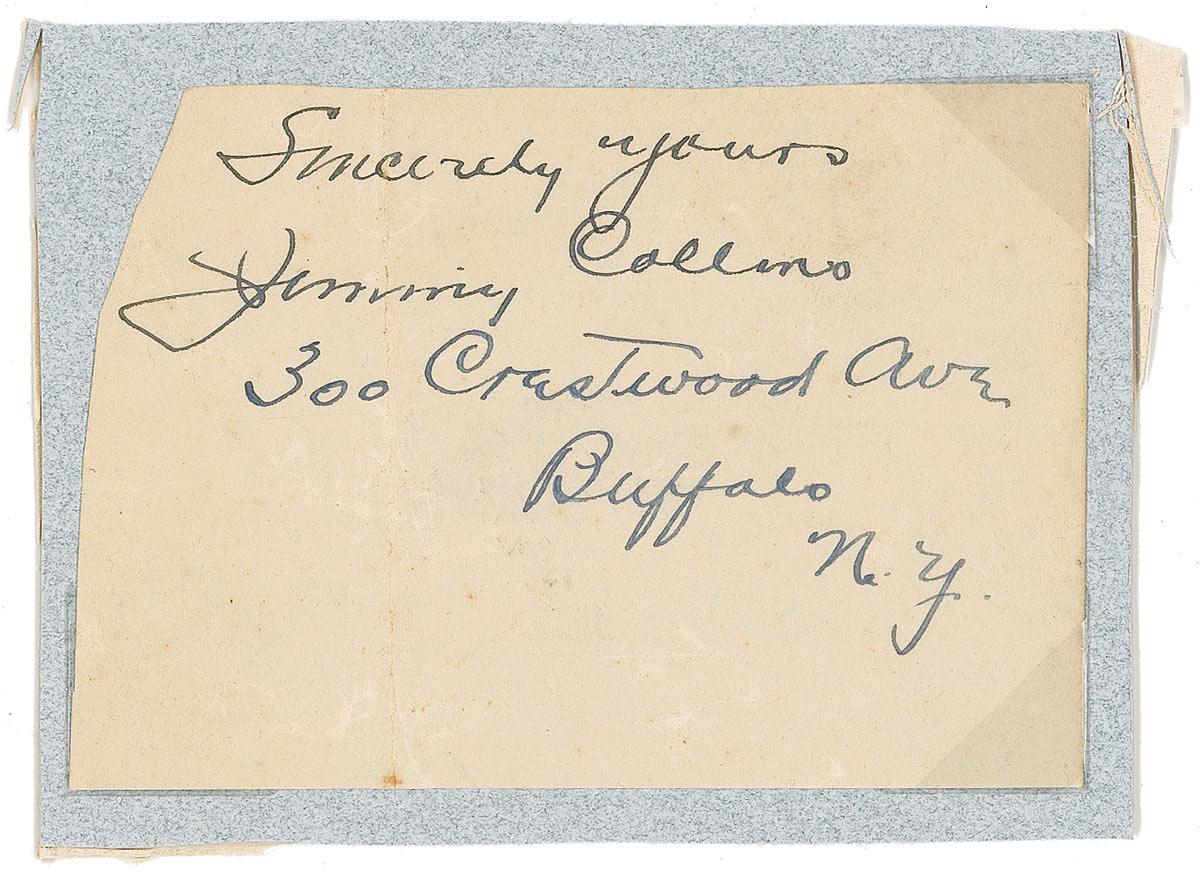 Sincerely yours
Jimmy Collins
300 Crestwood Ave
Buffalo
N.Y.